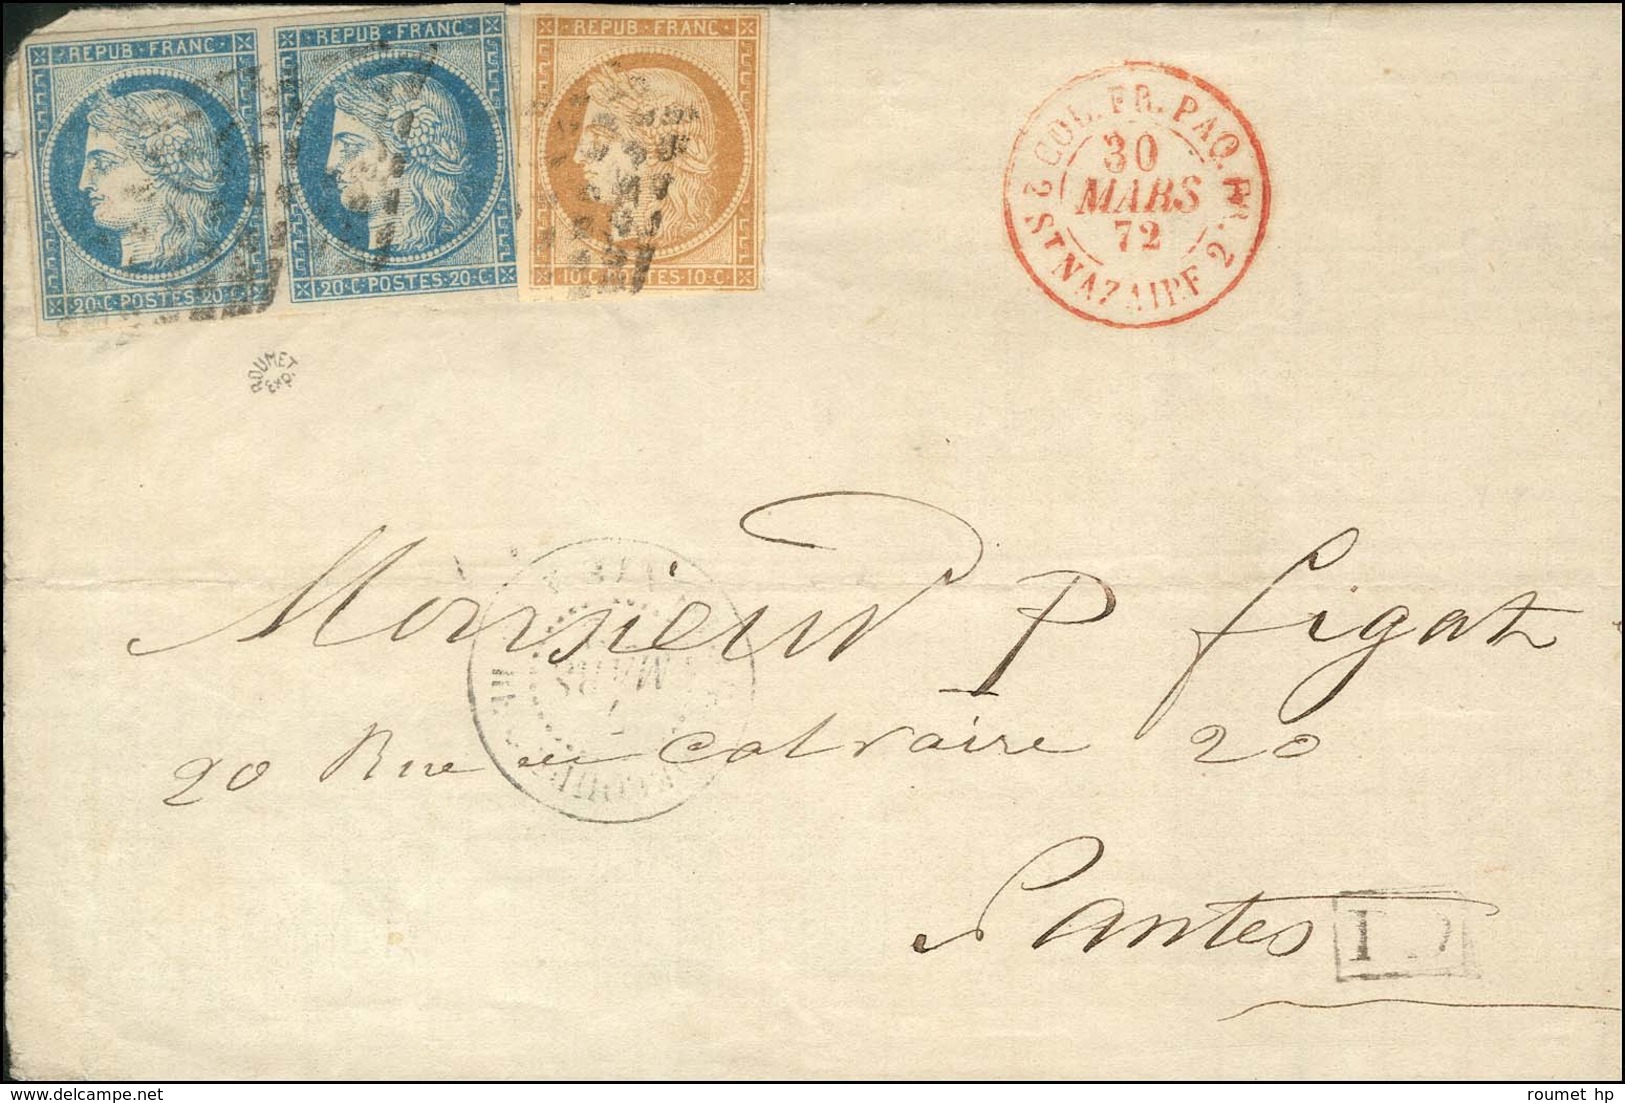 REPUB·FRANC
REPUB·FRANC
REPUB·FRANC
20·C·POSTES·20·C
20·C·POSTES·20·C
10·C·POSTES·10·C
2 COL. FR. PAQ. FR. 2
30
MARS
72
ST NAZAIRE
ROUMET
Exp.
Monsieur P figat
MARS
20 Rue du Calvaire 20
Nantes
roumet hp